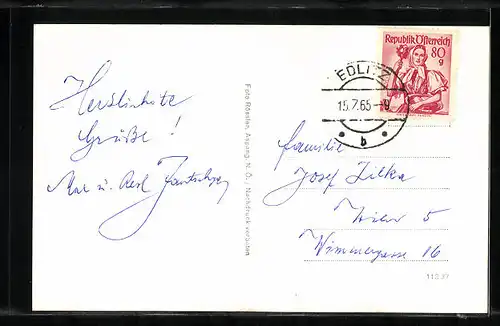 Herzlichste
Grüße!
u.
Foto Rössler, Aspang, N. Ö., Nachdruck verboten
Republik Österreich
80
g
EDLITZ
15.7.65-9
b
Familie
Josef Zilka
Wien 5
Wimmergasse 16